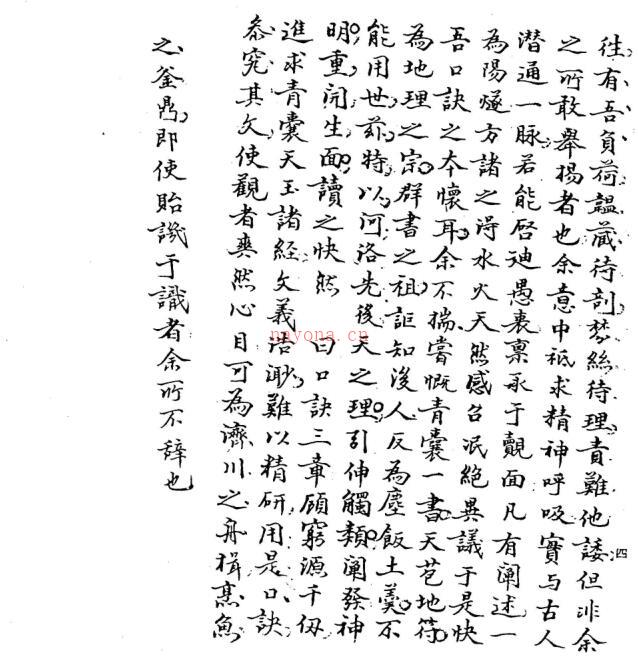 往有吾負荷韞藏待剖棼絲待理責難他諉但非余
之所敢舉揚者也余意中祗求精神呼吸實与古人
潛通一脉若能啓廸愚衷稟承于覿面凡有阐述一
為陽燧方諸之淂水火天然感召泯絶異議于是快
吾口訣之夲懷耳余不揣嘗慨青囊一書天苞地符
為地理之宗群書之祖詎知後人反為塵飯土羹不
能用世兹特以河洛先後天之理引伸觸類阐發神
明重開生面讀之快然曰口訣三章頋窮源千仭
進求青囊天玉諸経文義浩渺難以精研用是口訣
叅究其文使觀者爽然心目可為濟川之舟楫烹魚
之釜鼎即使貽譏于識者余所不辞也
四
nayona.cn